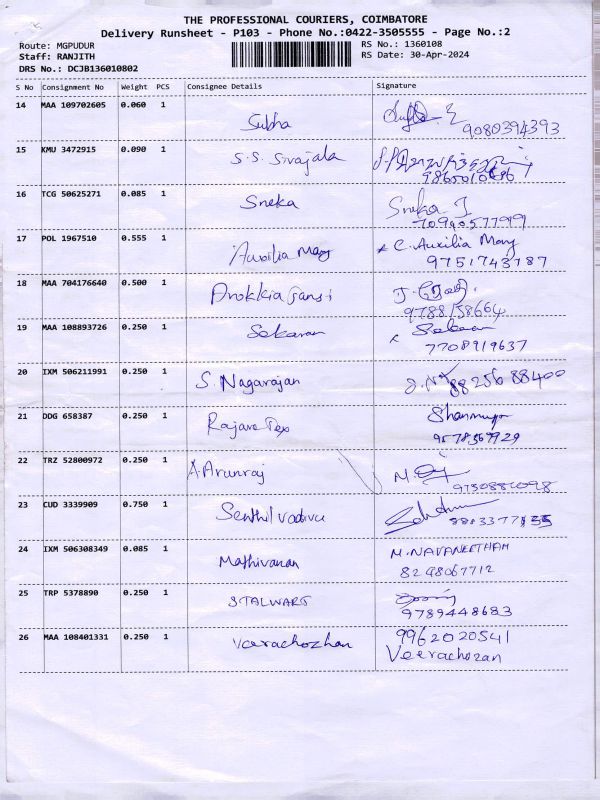 THE PROFESSIONAL COURIERS, COIMBATORE
Delivery Runsheet - P103 - Phone No.:0422-3505555 - Page No.:2
Route: MGPUDUR
RS No.: 1360108
Staff: RANJITH
RS Date: 30-Apr-2024
DRS No.: DCJB136010802
S No Consignment No Weight PCS Consignee Details Signature
14 MAA 109702605 0.060 1 Subha
9080394393
15 KMU 3472915 0.090 1 S.S. Sivajala
16 TCG 50625271 0.085 1 Sneka Sneka J
17 POL 1967510 0.555 1 Auxilia Mary C. Auxilia Mary
9751743787
18 MAA 704176640 0.500 1 Arokkia Jansi
9788158664
19 MAA 108893726 0.250 1 Sekaran
7708919637
20 IXM 506211991 0.250 1 S. Nagarajan 88256 88400
21 DDG 658387 0.250 1 Shanmuga
9578569929
22 TRZ 52800972 0.250 1 A. Arunraj
23 CUD 3339909 0.750 1 Senthil vadivu
24 IXM 506308349 0.085 1 Mathivanan M. NAVANEETHAM
8248067712
25 TRP 5378890 0.250 1 STALWART
9789448683
26 MAA 108401331 0.250 1 Veerachozhan 9962020541
Veerachozan